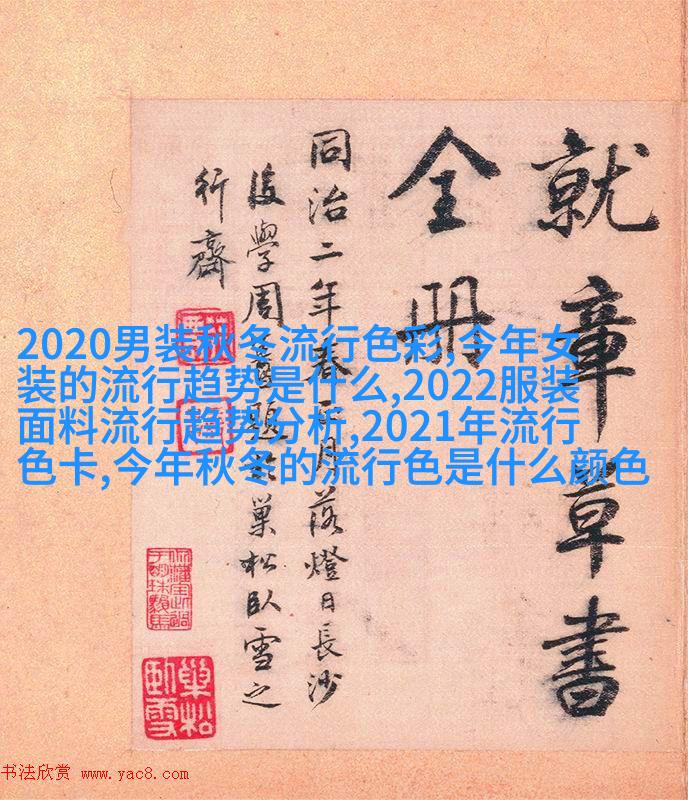 就章草書
全冊
同治二年春正月落燈日長沙
後學周題於巢松臥雪之
行齋
巢松
臥雪
2020男装秋冬流行色彩,今年女
装的流行趋势是什么,2022服装
面料流行趋势分析,2021年流行
色卡,今年秋冬的流行色是什么颜色
书法欣赏 www.yac8.com